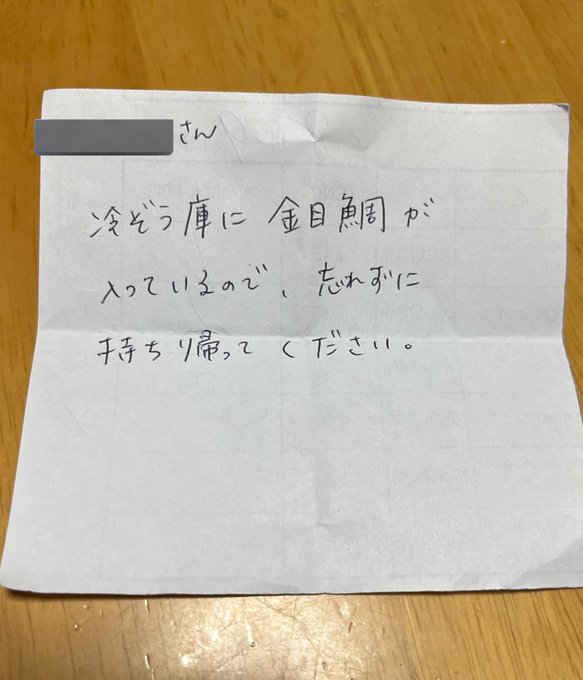 さん
冷ぞう庫に 金目鯛が
入っているので、忘れずに
持ち帰ってください。